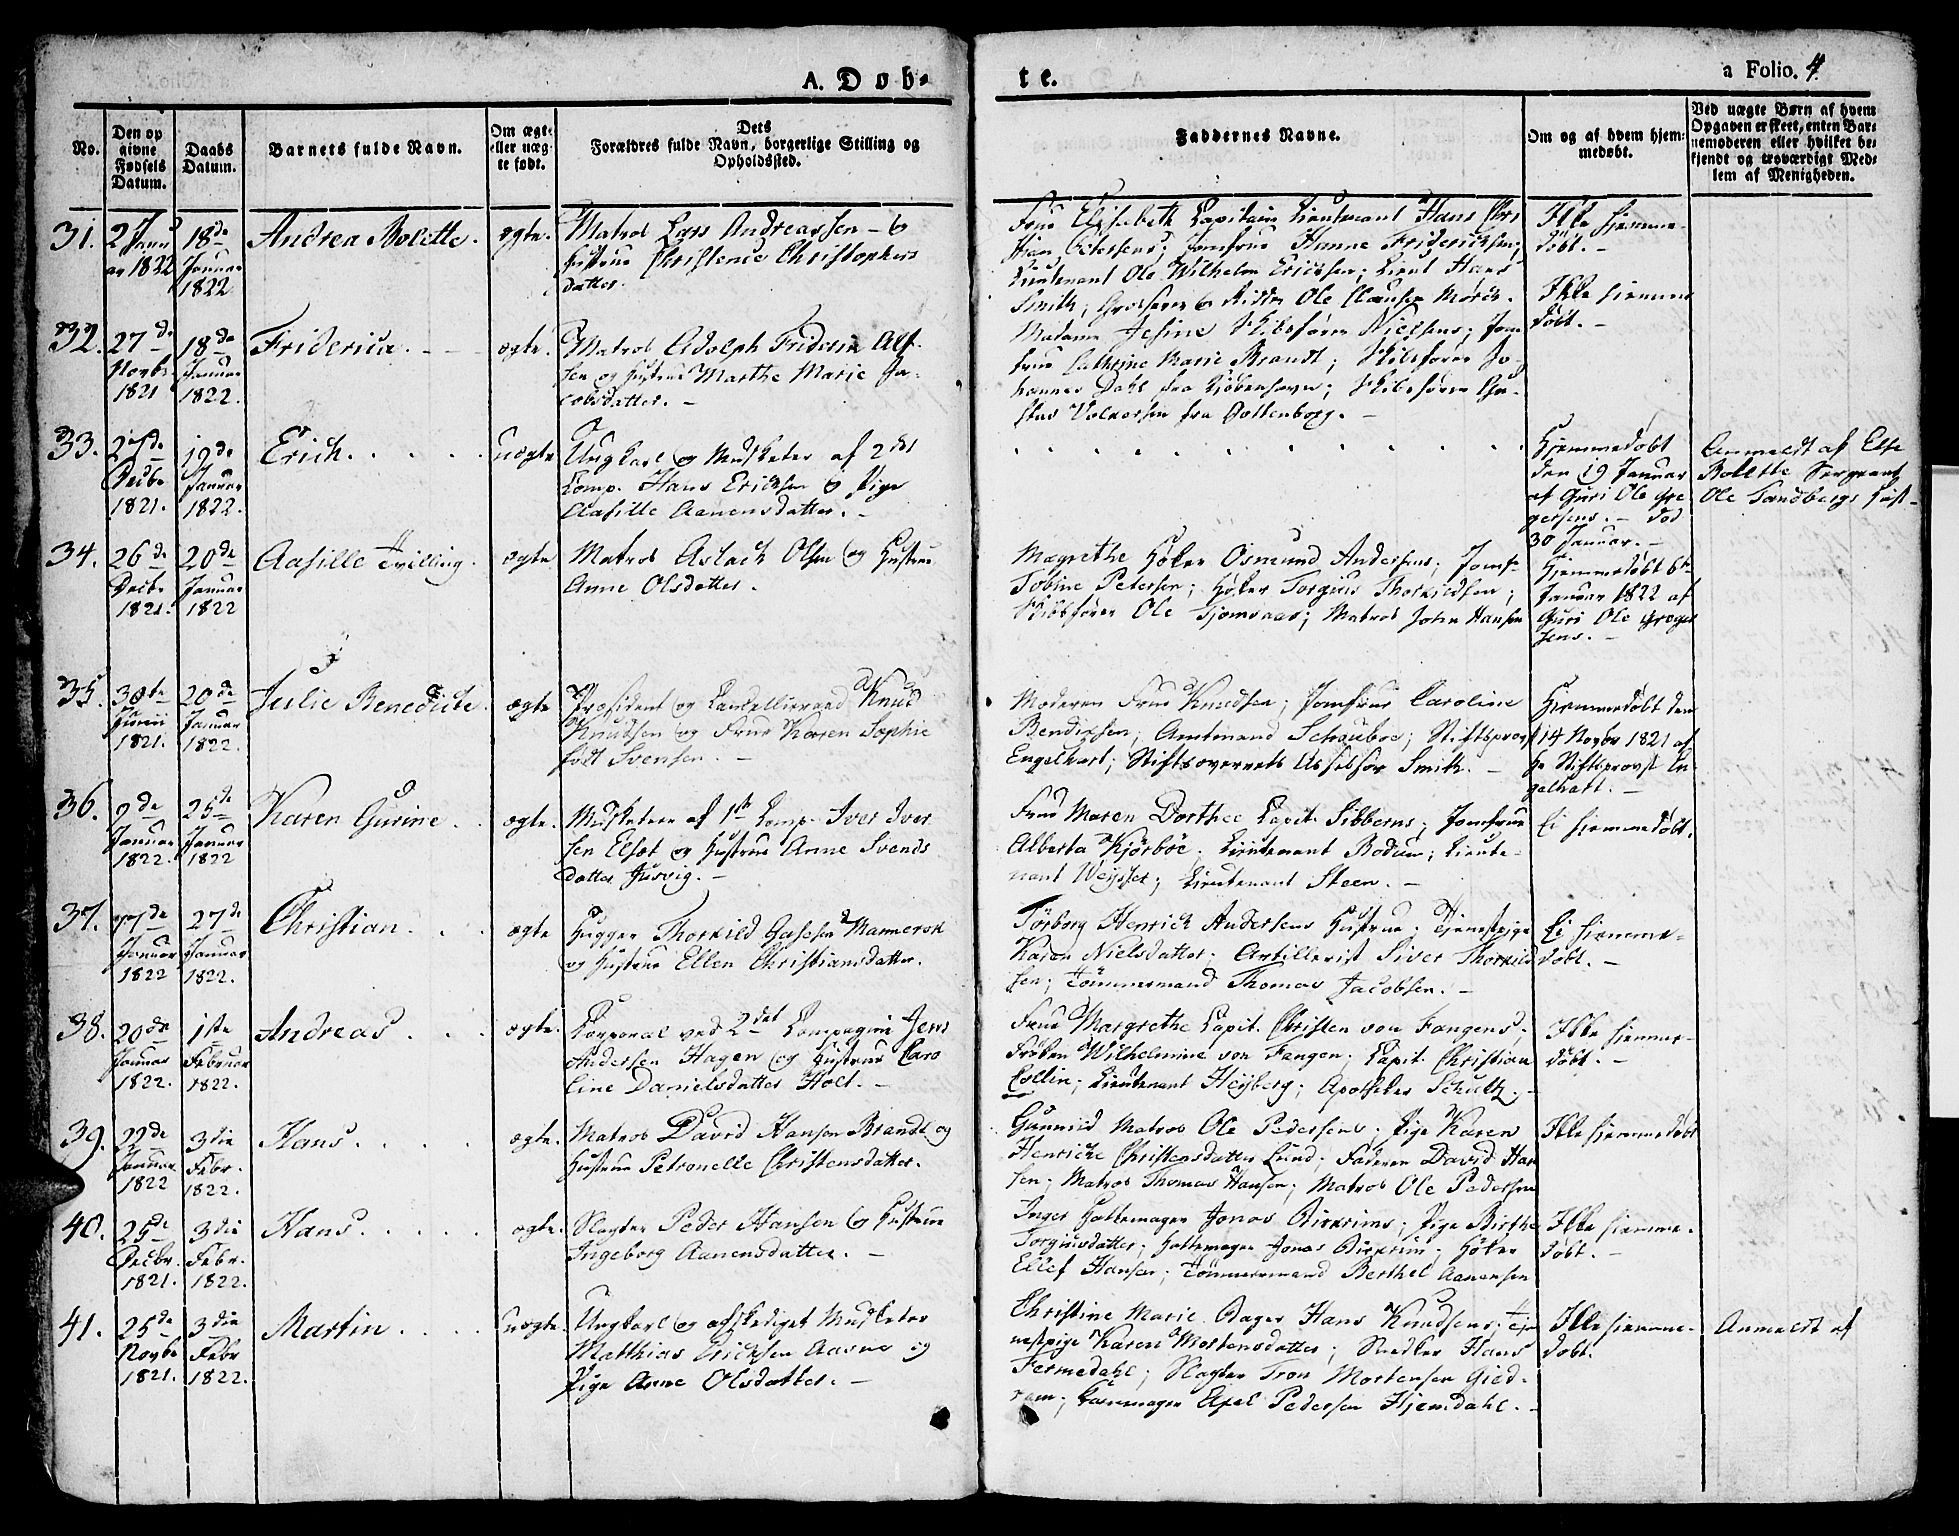 A. Døb-
te.
a Folio. 4.
No.
Den op
givne
Fødsels
Datum.
Daabs
Datum.
Barnets fulde Navn.
Om ægte
eller uæg
te født.
Dets
Forældres fulde Navn, borgerlige Stilling og
Opholdssted.
Faddernes Navne.
Om og af hvem hjem-
medøbt.
Ved uægte Børn af hvem
Opgaven er skeet, enten Bar-
nemoderen eller hvilket be-
kjendt og troværdigt Med-
lem af Menigheden.
31.
2 Janu
ar 1822
18de
Januar
1822
Andrea Bolette.
ægte.
Matros Lars Andreassen og
Hustrue Christence Christophers
datter.
Frue Elisabeth Capitain Lieutenant Hans Chri
stian Petersens; Jomfrue Hanne Friderichsen;
Lieutenant Ole Wilhelm Ericksen; Lieut Hans
Smith; Grosserer og Ridder Ole Clausen Mørch.
Ikke hjemme-
døbt. -
32.
27de
Novbr
1821
18de
Januar
1822.
Friderica. - - -
ægte.
Matros Adolph Frideric Alf-
sen og Hustrue Marthe Marie Ja-
cobsdatter. -
Madame Jesine Skibsfører Nielsens; Jom
frue Cathrine Marie Brandt; Skibsfører Jo-
hannes Dahl fra Kiøbenhavn; Skibsfører Gu-
stav Volkersen fra Gottenborg. -
Ikke hjemme
døbt. -
33.
27de
Decbr
1821.
19de
Januar
1822.
Erich. . . . .
uægte
Ungkarl og Musketer af 2det
Comp. Hans Ericksen og Pige
Aasille Aanensdatter. -
Hjemmedøbt
den 19 Januar
af Guri Ole Gre
gersens. - Død
30 Januar. -
Anmeldt af Else
Bolette Sergeant
Ole Sandbergs
34.
26de
Decbr
1821.
20de
Januar
1822
Aasille Tvilling.
ægte
Matros Aslach Olsen og Hustrue
Anne Olsdatter.
Magrethe Høker Osmund Andersens; Jomf.
Tobine Petersen; Høker Torgius Thorkildsen;
Skibsfører Ole Tjomsaas; Matros John Hansen
Hjemmedøbt 6te
Januar 1822 af
Guri Ole Greger
sens. -
35.
30te
Junii
1821.
20de
Januar
1822.
Julie Benedicte.
ægte
Præsident og Cancellieraad Knud
Knudsen og Frue Karen Sophie
født Svensen. -
Moderen Frue Knudsen; Jomfrue Caroline
Bendixsen; Amtmand Schouboe; Stiftsprovst
Engelhart; Stiftsoverrets Assessor Smith. -
Hjemmedøbt den
14 Novbr 1821 af
Hr Stiftsprovst En-
gelhart. -
36.
2de
Januar
1822.
25de
Januar
1822
Karen Gurine. .
ægte.
Musketer af 1ste Comp. Iver Iver
sen Elset og Hustrue Anne Svends
datter Justvig. -
Frue Maren Dorthee Capit. Sibberns; Jomfrue
Alberta Kjørboe; Lieutenant Rodum; Lieute-
nant Weisset; Lieutenant Steen. -
Ei hjemmedøbt.
37.
17de
Januar
1822
27de
Januar
1822.
Christian. . . .
ægte
Hugger Thorkild Gasesen Mannersk
og Hustrue Ellen Christiansdatter.
Tørborg Henrich Andersens Hustrue; Tjenstpige
Karen Nielsdatter; Artillerist Siver Thorkild
sen; Tømmermand Thomas Jacobsen. -
Ei hjemme-
døbt. -
38.
20de
Januar
1822.
1ste
Februar
1822.
Andreas. . . .
ægte.
Corporal ved 2det Compagnie Jens
Andersen Hagen og Hustrue Caro
line Danielsdatter Holt. -
Frue Margrethe Capit. Christen von Fangens;
Frøken Wilhelmine von Fangen; Capit. Christian
Collin; Lieutenant Heyberg; Apotheker Schultz. -
Ikke hjemme-
døbt. -
39.
22de
Januar
1822
3die
Febr.
1822.
Hans. . . . .
ægte.
Matros David Hansen Brandt og
Hustrue Petronelle Christensdatter.
Gunnild Matros Ole Pedersens; Pige Karen
Henricke Christensdatter Lund; Faderen David Han
sen; Matros Thomas Hansen; Matros Ole Pedersen
Ikke hjemmedøbt
40.
25de
Decbr.
1821.
3die
Febr.
1822.
Hans. . . . .
ægte.
Slagter Peder Hansen og Hustrue
Ingeborg Aanensdatter. -
Inger Hattemager Jonas Birkrims; Pige Birthe
Torgiusdatter; Hattemager Jonas Birkrim; Høker
Ellef Hansen; Tømmermand Berthel Aanensen
Ikke hjemme-
døbt. -
41.
25de
Novbr
1821.
3die
Febr
1822.
Martin. . . . .
uægte.
Ungkarl og afskediget Musketer
Matthias Ericksen Aasne og
Pige Anne Olsdatter. -
Christine Marie Bager Hans Knudsens; Tje
nestpige Karen Mortensdatter; Snedker Hans
Fermedahl; Slagter Tron Mortensen Gied-
ram; Garvemager Axel Pedersen Hjemdahl. -
Ikke hjemme-
døbt.
Anmeldt af